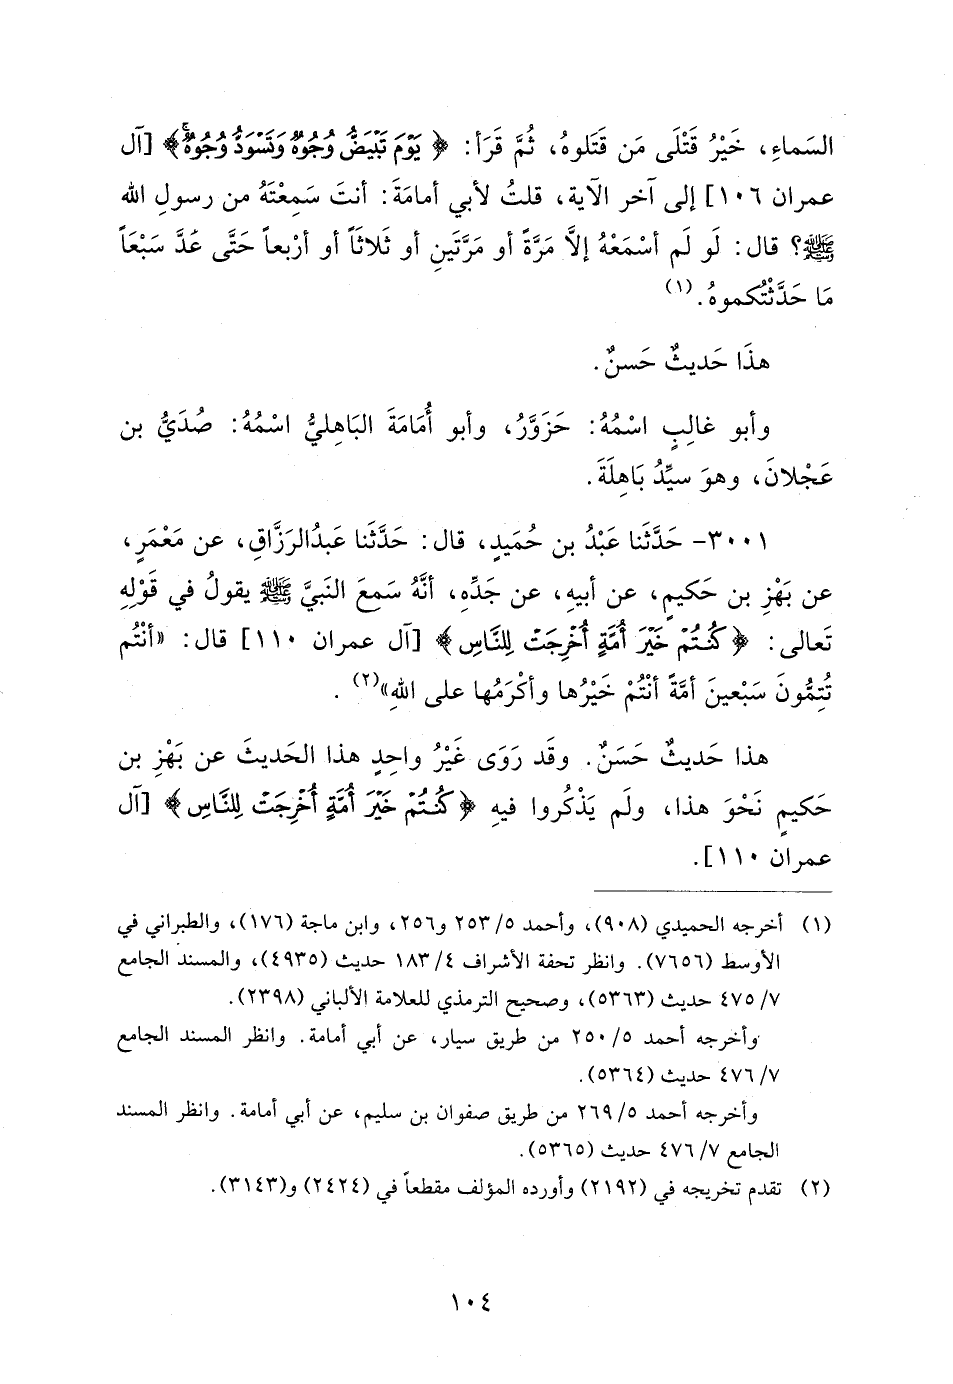 السَماءِ، خَيْرُ قَتْلَى مَن قَتَلوهُ، ثُمَّ قَرَأ: ﴿ يَوْمَ تَبْيَضُّ وُجُوهٌ وَتَسْوَدُّ وُجُوهٌ ﴾ [آل
عمران ١٠٦] إلى آخر الآية، قلتُ لأبي أمامَةَ: أنتَ سَمِعْتَهُ من رسولِ الله
ﷺ؟ قال: لَو لَم أسْمَعْهُ إلاَّ مَرَّةً أو مَرَّتَينِ أو ثَلاثَاً أو أرْبعاً حَتَّى عَدَّ سَبْعَاً
مَا حَدَّثْتُكموهُ.(١)
هذَا حَديثٌ حَسنٌ.
وأبو غالِبٍ اسْمُهُ: حَزَوَّرُ، وأبو أُمَامَةَ البَاهِليُّ اسْمُهُ: صُدَيُّ بن
عَجْلانَ، وهوَ سيِّدُ بَاهِلَةَ.
٣٠٠١- حَدَّثَنا عَبْدُ بن حُمَيدٍ، قال: حَدَّثَنا عَبدُالرَزَّاقِ، عن مَعْمَرٍ،
عن بَهْزِ بن حَكيمٍ، عن أبيهِ، عن جَدِّهِ، أنَّهُ سَمِعَ النَبيَّ ﷺ يقولُ في قَوْلِهِ
تَعالى: ﴿ كُنتُمْ خَيْرَ أُمَّةٍ أُخْرِجَتْ لِلنَّاسِ ﴾ [آل عمران ١١٠] قال: «أنْتُم
تُتِمُّونَ سَبْعينَ أمَّةً أنْتُمْ خَيْرُها وأكْرَمُها على اللهِ»(٢) .
هذا حَديثٌ حَسَنٌ. وقَد رَوَى غَيْرُ واحِدٍ هذا الحَديثَ عن بَهْزِ بن
حَكيمٍ نَحْوَ هذا، ولَم يَذْكُروا فيهِ ﴿ كُنتُمْ خَيْرَ أُمَّةٍ أُخْرِجَتْ لِلنَّاسِ ﴾ [آل
عمران ١١٠].
(١) أخرجه الحميدي (٩٠٨)، وأحمد ٥/ ٢٥٣ و٢٥٦، وابن ماجة (١٧٦)، والطبراني في
الأوسط (٧٦٥٦). وانظر تحفة الأشراف ٤/ ١٨٣ حديث (٤٩٣٥)، والمسند الجامع
٧/ ٤٧٥ حديث (٥٣٦٣)، وصحيح الترمذي للعلامة الألباني (٢٣٩٨).
وأخرجه أحمد ٥/ ٢٥٠ من طريق سيار، عن أبي أمامة. وانظر المسند الجامع
٧/ ٤٧٦ حديث (٥٣٦٤).
وأخرجه أحمد ٥/ ٢٦٩ من طريق صفوان بن سليم، عن أبي أمامة. وانظر المسند
الجامع ٧/ ٤٧٦ حديث (٥٣٦٥).
(٢) تقدم تخريجه في (٢١٩٢) وأورده المؤلف مقطعاً في (٢٤٢٤) و(٣١٤٣).
١٠٤